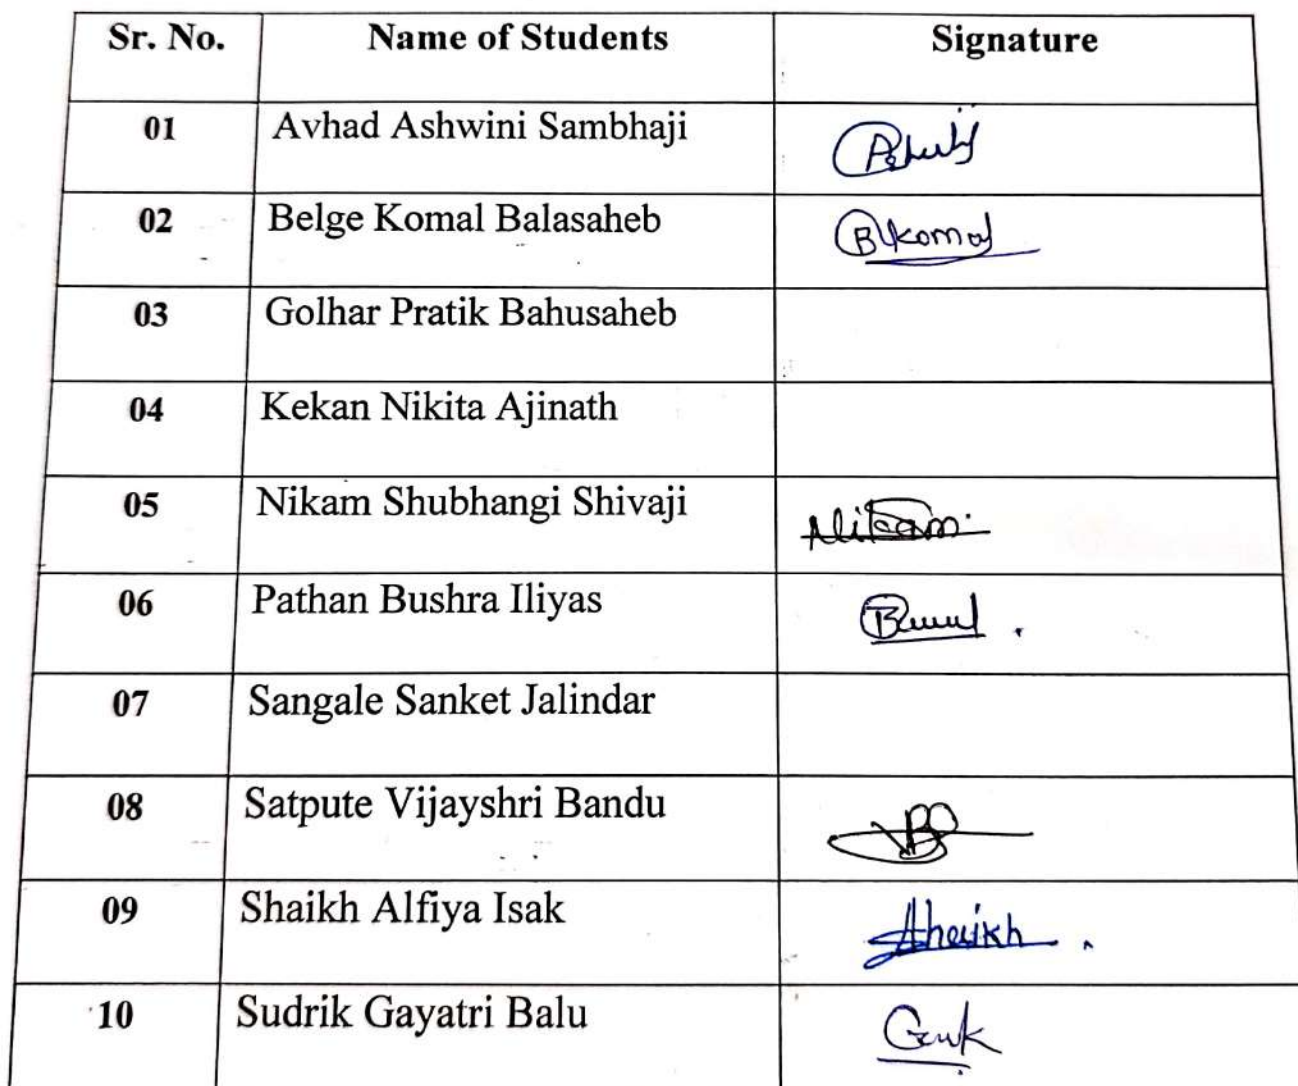 Sr. No. Name of Students Signature
01 Avhad Ashwini Sambhaji
02 Belge Komal Balasaheb BKomal
03 Golhar Pratik Bahusaheb
04 Kekan Nikita Ajinath
05 Nikam Shubhangi Shivaji Nikam
06 Pathan Bushra Iliyas
07 Sangale Sanket Jalindar
08 Satpute Vijayshri Bandu
09 Shaikh Alfiya Isak
10 Sudrik Gayatri Balu